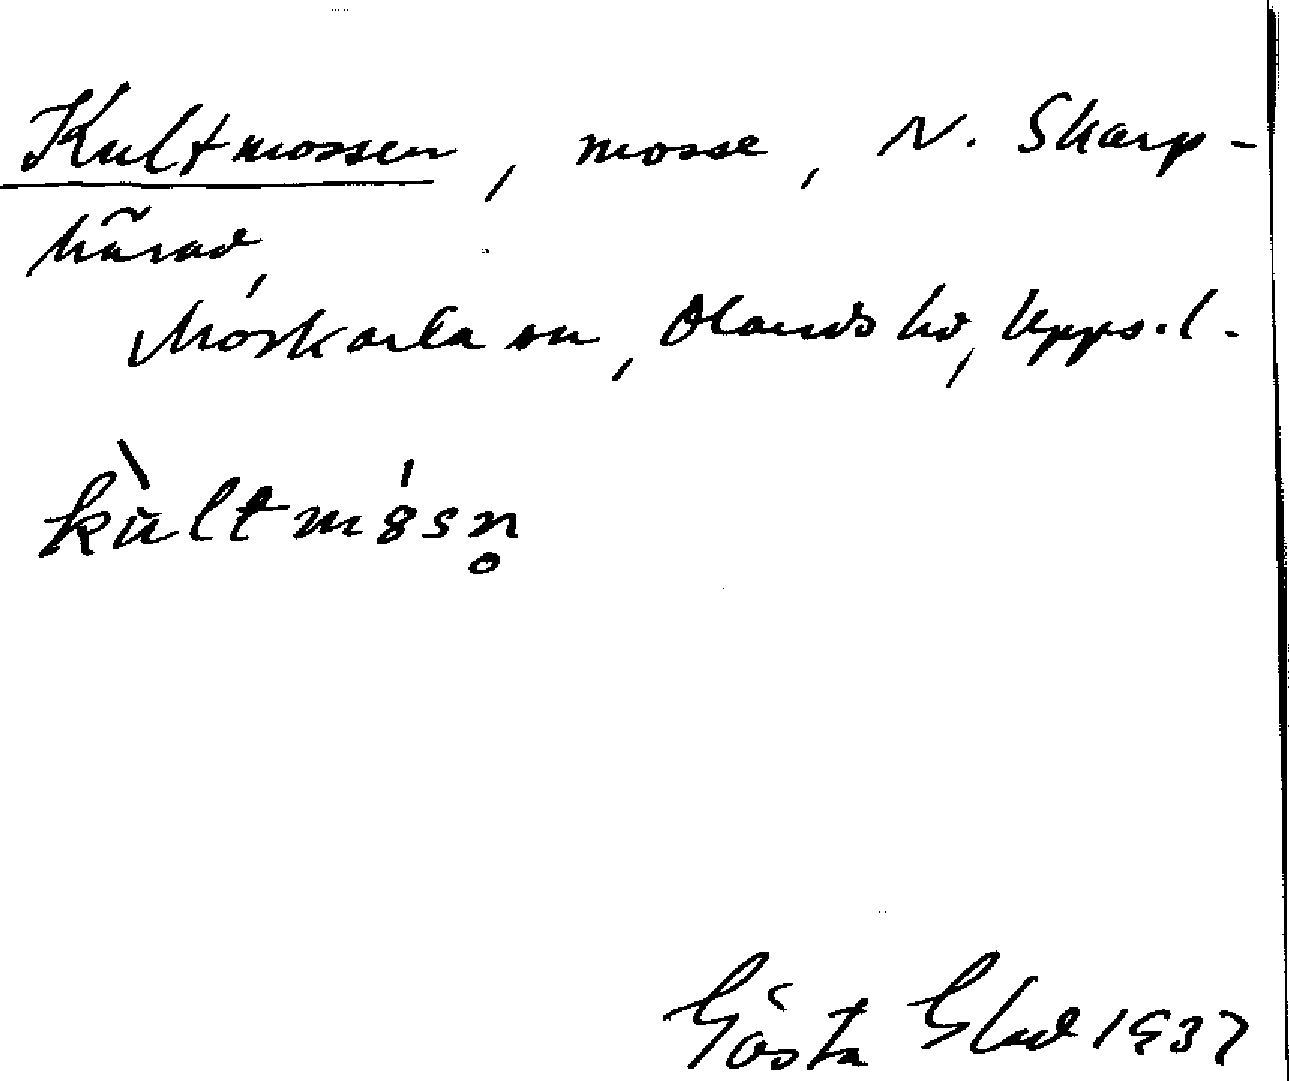 Kultmossen, mosse, N. Skarp-
härad,
Morkarla sn, Olands hd, Upps.l.
kùltmósn̥
Gösta Glad 1937